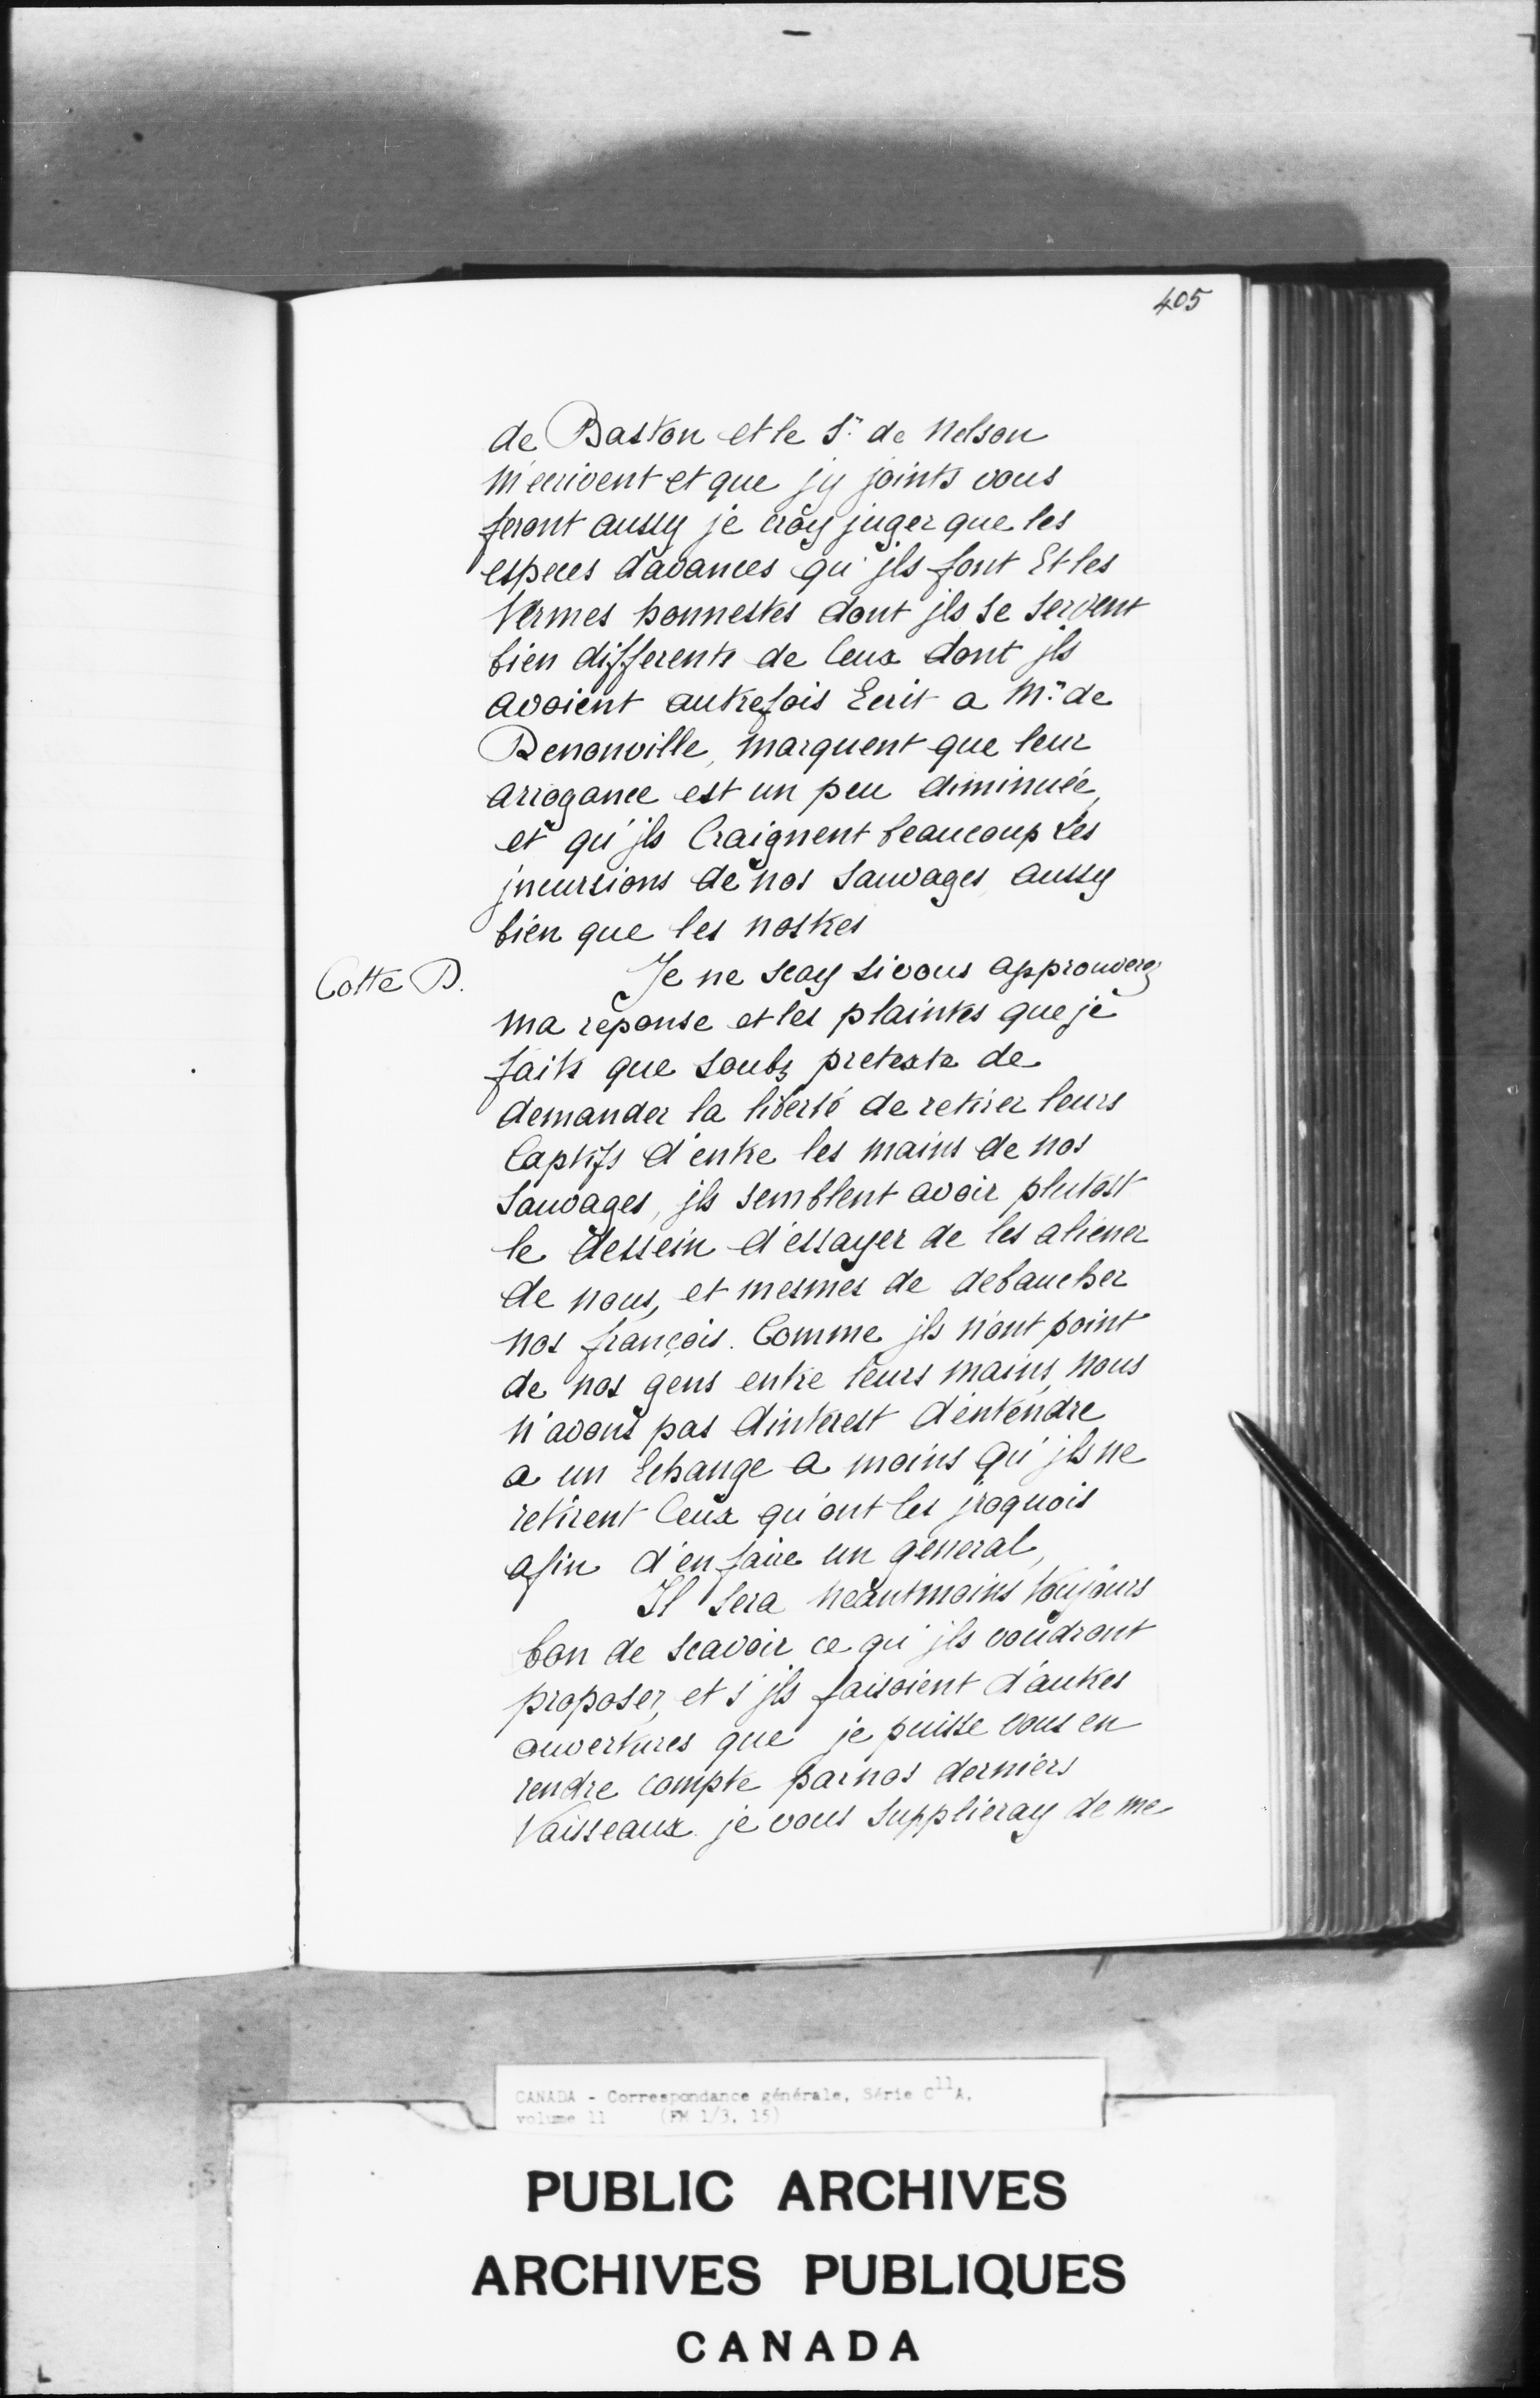 405
de Baston et le Sr. de Nelson
m'ecrivent et que j'y joints vous
feront aussy je croy juger que les
especes d'avances qu'jls font Et les
termes honnestes dont jls se servent
bien differents de Ceux dont jls
avoient autrefois Ecrit a Mr. de
Denonville, marquent que leur
arrogance est un peu diminuée,
et qu'jls Craignent beaucoup Les
jncursions de nos Sauvages aussy
bien que les nostres
Cotte D.
Je ne scay si vous approuverez
ma réponse et les plaintes que je
faits que soubz pretexte de
demander la liberté de retirer leurs
Captifs d'entre les mains de nos
Sauvages, jls semblent avoir plutost
le dessein d'essayer de les aliener
de nous, et mesmes de debaucher
nos françois. Comme jls n'ont point
de nos gens entre leurs mains, nous
n'avons pas d'interest d'entendre
a un Echange a moins qu'jls ne
retirent Ceux qu'ont les jroquois
afin d'en faire un general,
Il sera neantmoins toujours
bon de scavoir ce qu'jls voudront
proposer, et s'jls faisoient d'autres
ouvertures que je puisse vous en
rendre compte par nos derniers
Vaisseaux je vous supplieray de me
CANADA - Correspondance générale, Série C11A,
volume 11 (FM 1/3, 15)
PUBLIC ARCHIVES
ARCHIVES PUBLIQUES
CANADA
L